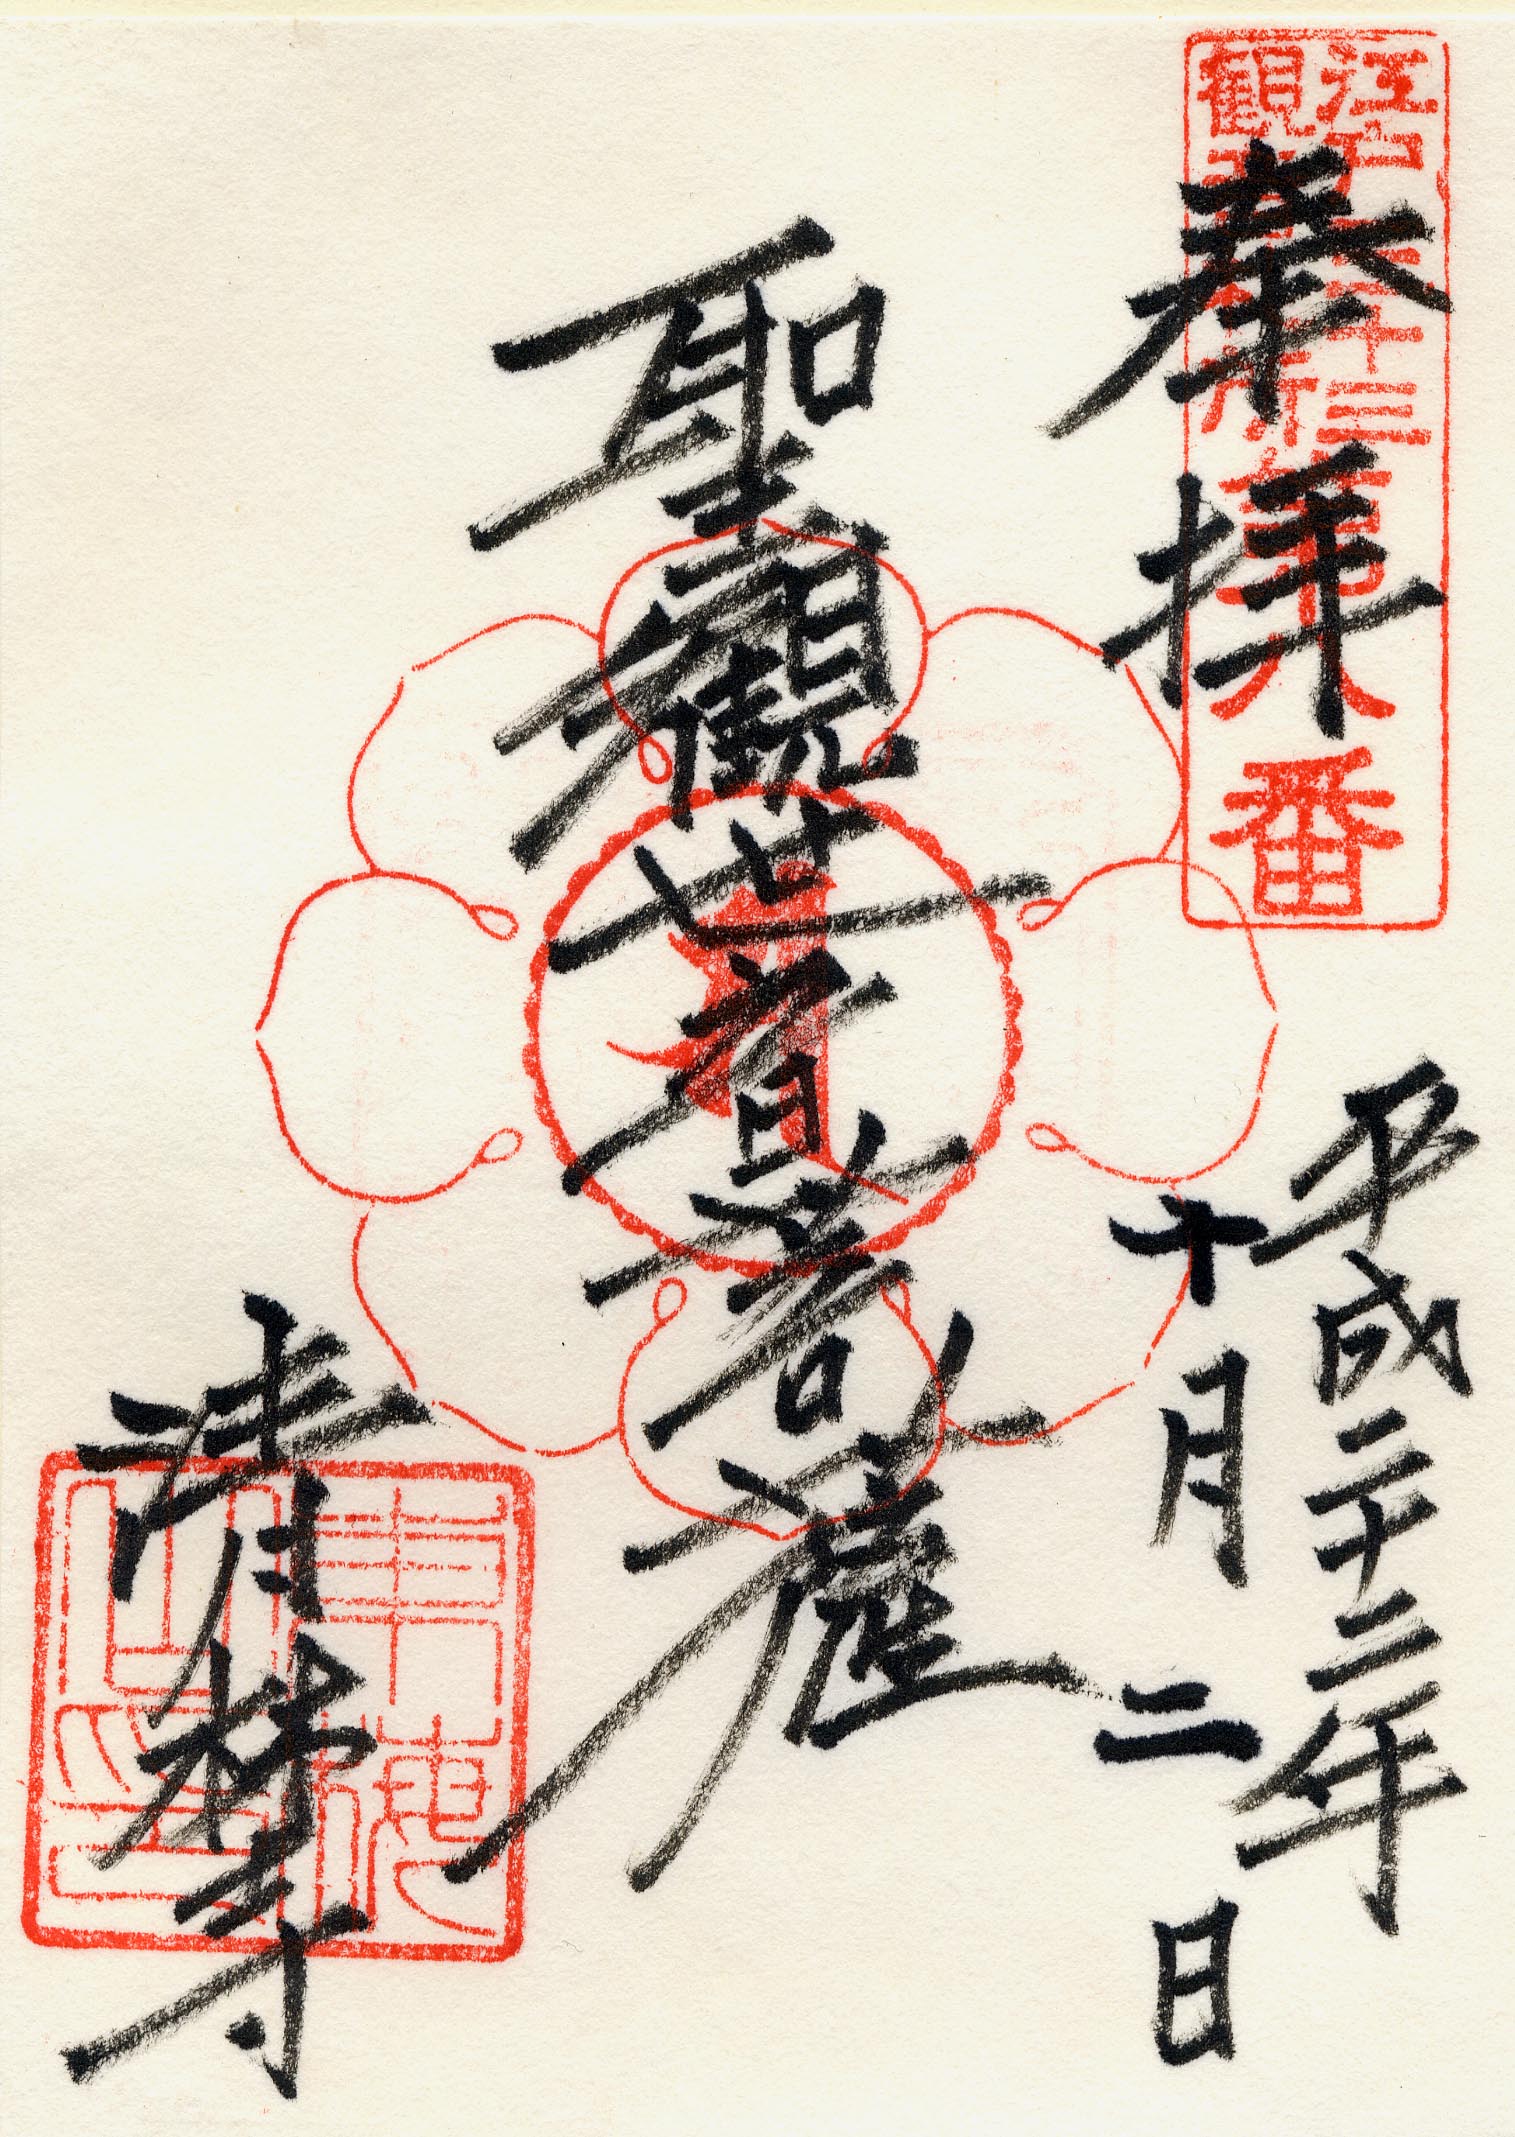 江戸三十三
観音札所第八番
奉拝
平成二十二年
十月二日
聖観世音菩薩
清林寺